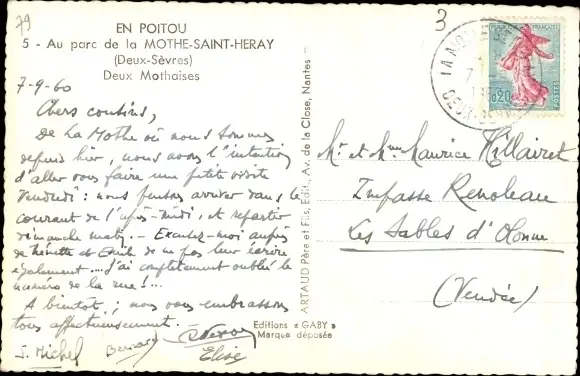 79
3
EN POITOU
5 - Au parc de la MOTHE-SAINT-HERAY
(Deux-Sèvres)
Deux Mothaises
7-9-60
Chers cousins,
De La Mothe où nous sommes
depuis hier, nous avons l'intention
d'aller vous faire une petite visite
Vendredi : nous pensons arriver dans le
courant de l'après-midi, et repartir
dimanche matin. - Excusez-moi auprès
de et de ne pas leur écrire
également.... J'ai complètement oublié le
numéro de la rue !...
A bientôt ; nous vous embrassons
tous affectueusement.
S. Michel Bernard
Elise
Editions « GABY »
Marque déposée
ARTAUD Père et Fils, Edit., Av. de la Close, Nantes
LA MOTHE
DEUX-SEVRES
REPUBLIQUE FRANÇAISE
0,20
POSTES
Mr et Mme Maurice Hillairet
Impasse Renoleau
Les Sables d'Olonne
(Vendée)